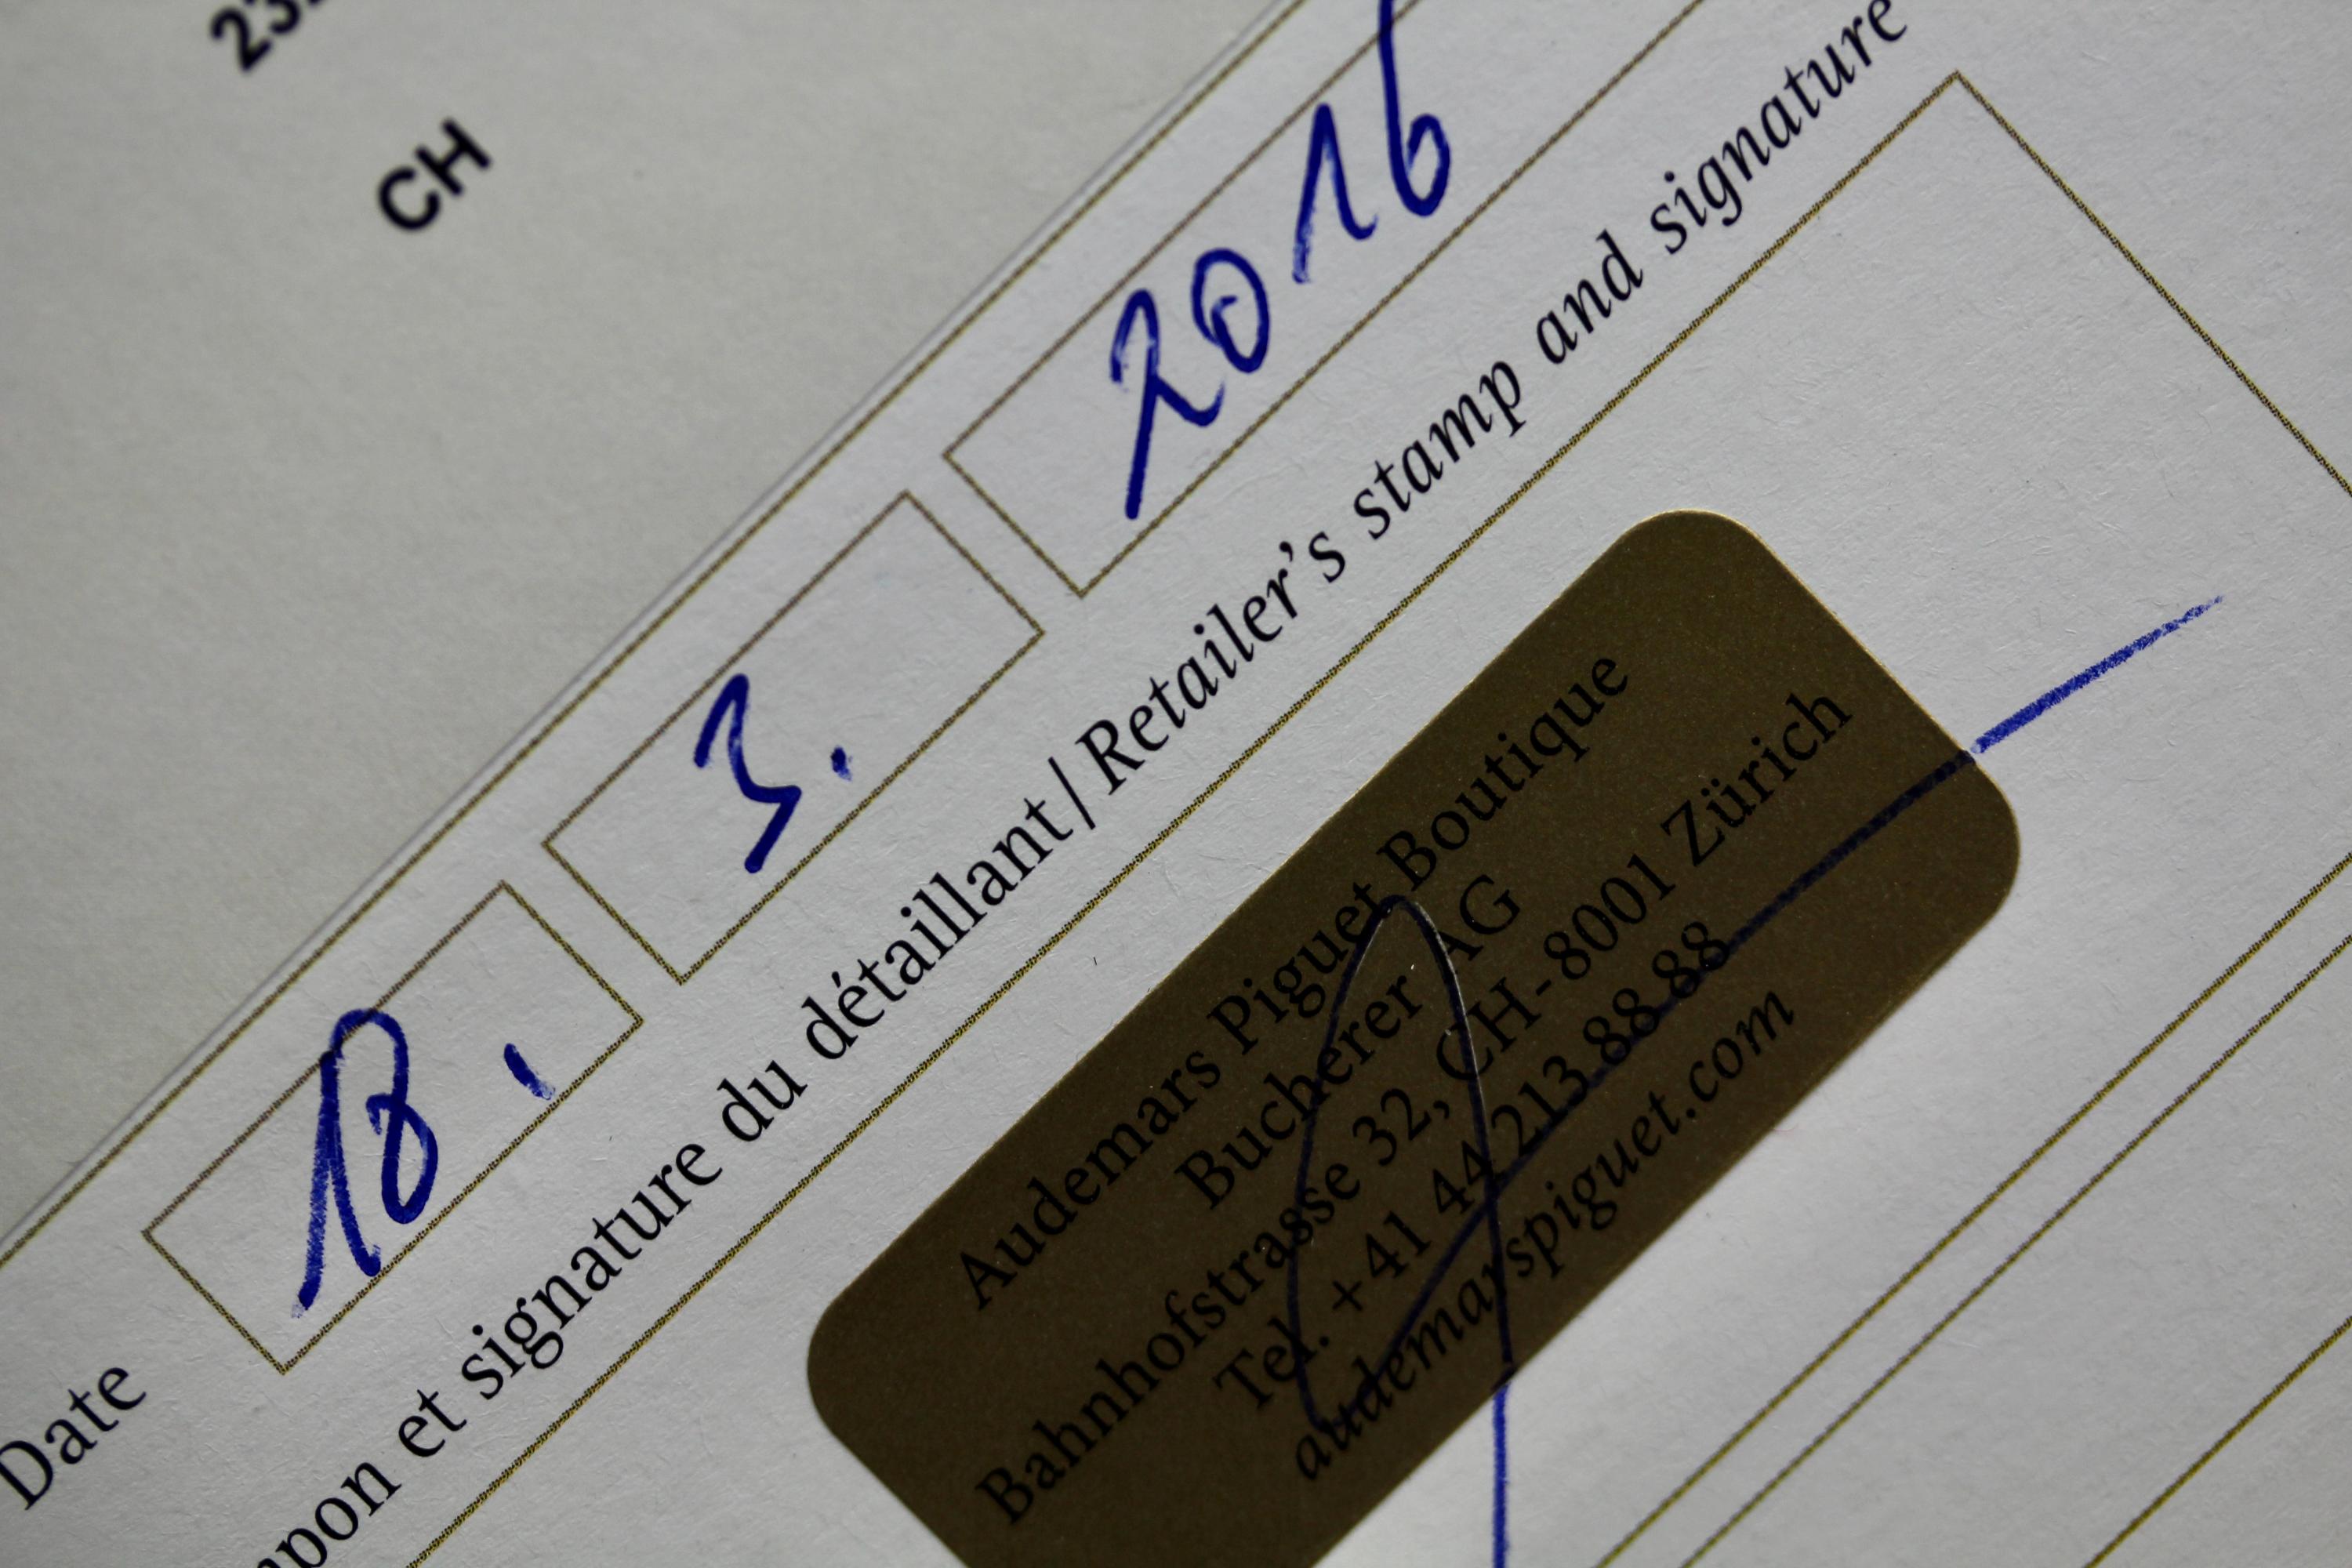 CH
Date 18. 3. 2016
et signature du détaillant/Retailer's stamp and signature
Audemars Piguet Boutique
Bucherer AG
Bahnhofstrasse 32, CH-8001 Zürich
Tel. +41 44 213 88 88
audemarspiguet.com